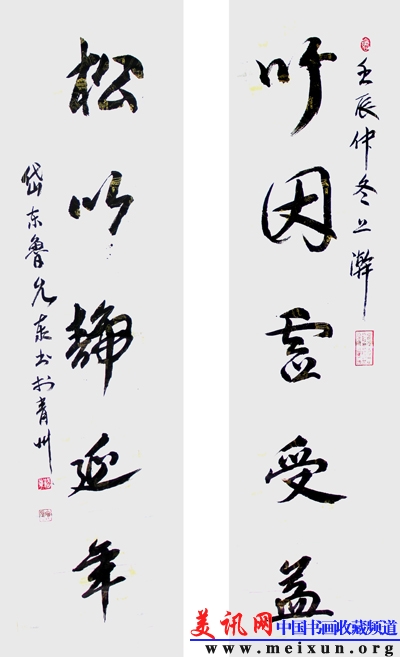 壬辰仲冬上澣
竹因虚受益
松以静延年
岱东鲁泉书於青州
美讯网 中国书画收藏频道
www.meixun.org